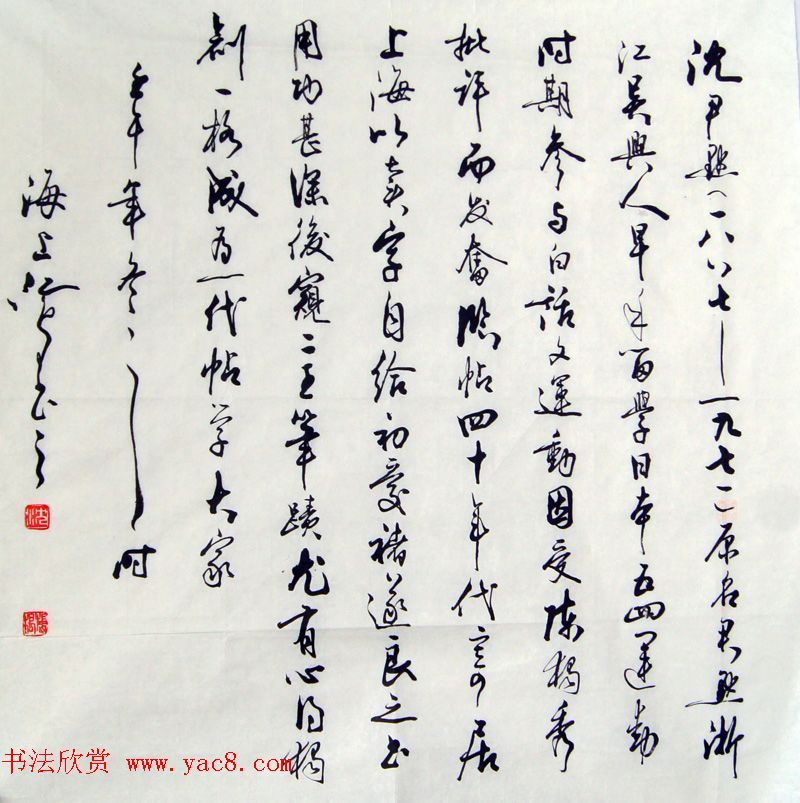 沈尹默(一八八七—一九七一)原名君默浙
江吴興人早年留學日本五四運動
时期参与白话文運動因受陳獨秀
批评而发奮臨帖四十年代寄居
上海以卖字自给初爱褚遂良之书
用功甚深後窺二王筆蹟尤有心得獨
創一格成为一代帖学大家
壬午年冬时
海上
沈
书法欣赏 www.yac8.com